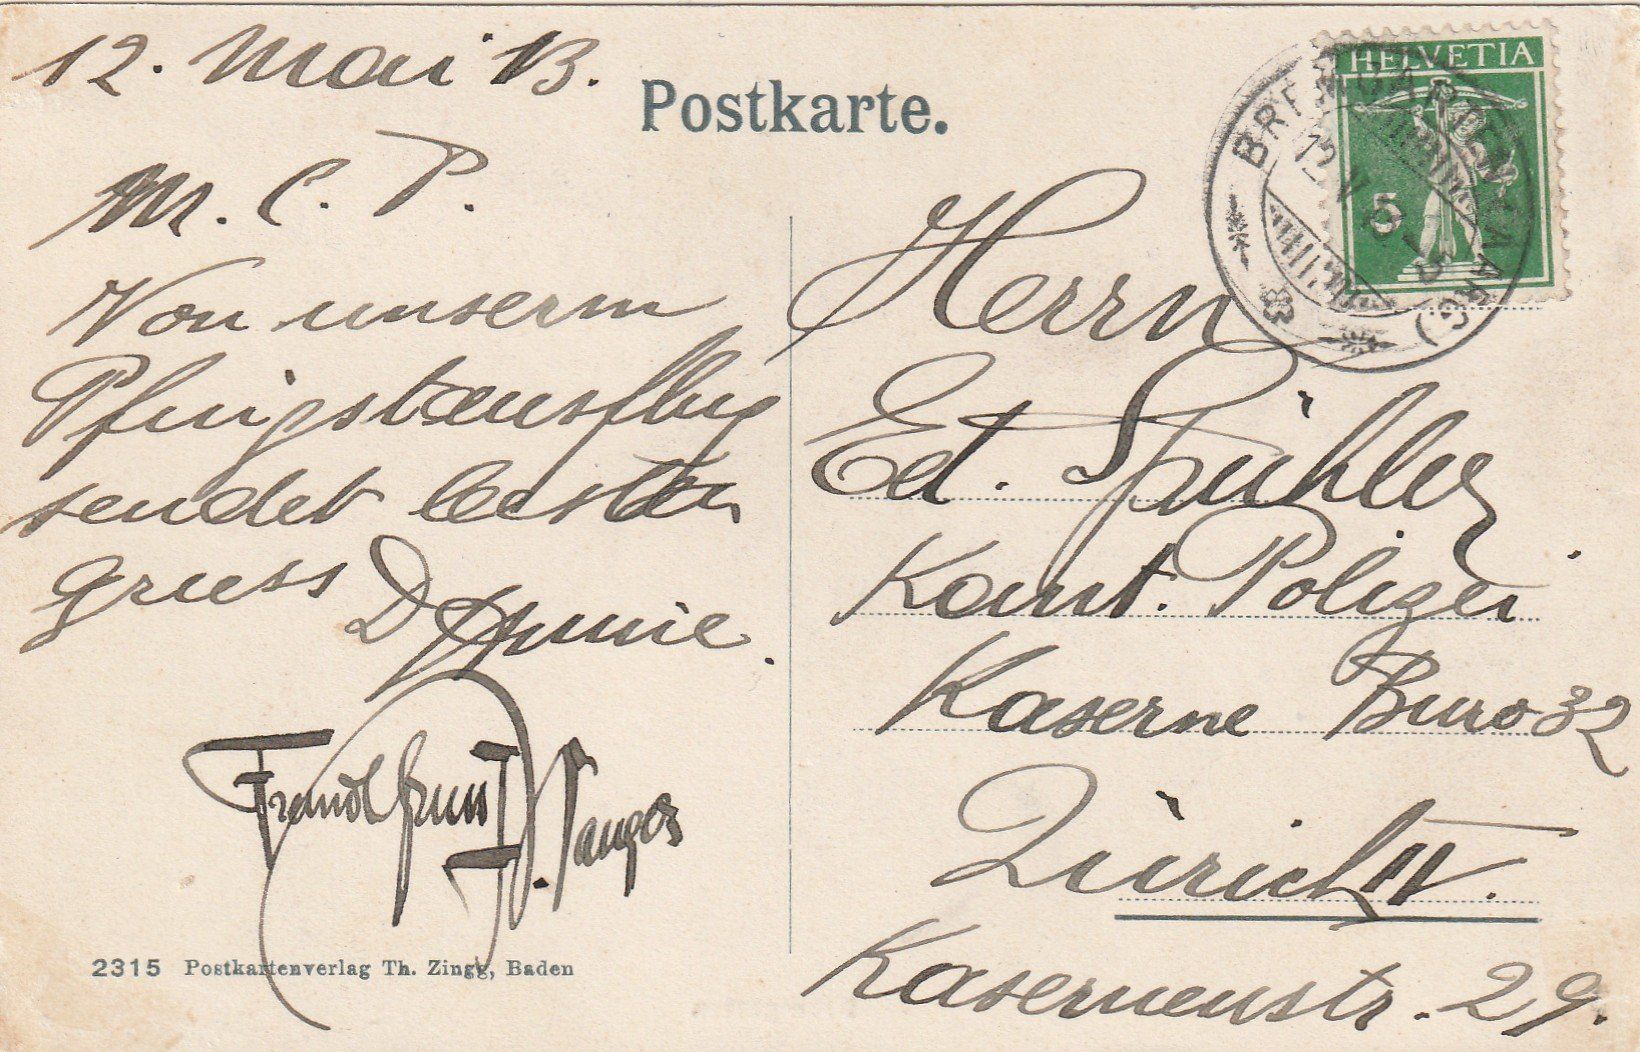 12. Mai 13.
Postkarte.
HELVETIA
5
BREMGARTEN
(AARG)
12 V 13
M. C. P.
Von unserm
Pfingstausflug
sendet besten
Gruss
Herrn
Ed. Spühler
Kant. Polizei
Kaserne Buro 32
Zürich IV.
Kasernenstr. 29.
2315 Postkartenverlag Th. Zingg, Baden